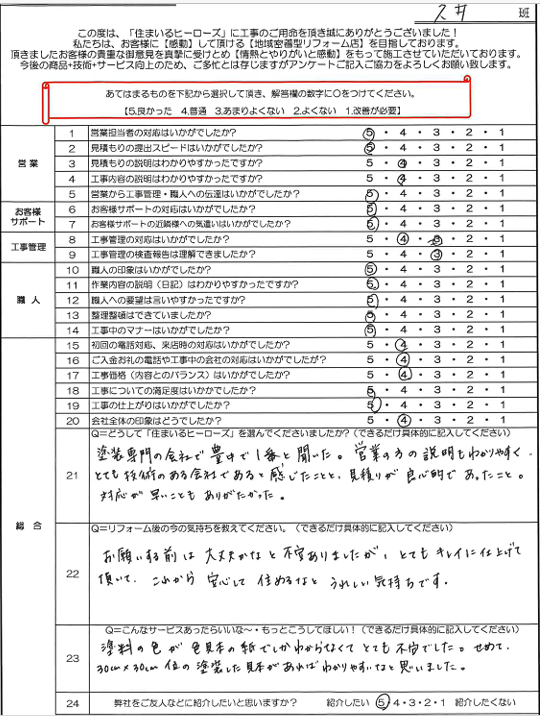 班
この度は、「住まいるヒーローズ」に工事のご用命を頂き誠にありがとうございました！
私たちは、お客様に【感動】して頂ける【地域密着型リフォーム店】を目指しております。
頂きましたお客様の貴重な御意見を真摯に受けとめ【情熱とやりがいと感動】をもって施工させていただいております。
今後の商品+技術+サービス向上のため、ご多忙とは存じますがアンケートご記入ご協力をよろしくお願い致します。
あてはまるものを下記から選択して頂き、解答欄の数字に○をつけてください。
【5.良かった 4.普通 3.あまりよくない 2.よくない 1.改善が必要】
営業
1 営業担当者の対応はいかがでしたか？ 5・4・3・2・1
2 見積もりの提出スピードはいかがでしたか？ 5・4・3・2・1
3 見積もりの説明はわかりやすかったですか？ 5・4・3・2・1
4 工事内容の説明はわかりやすかったですか？ 5・4・3・2・1
5 営業から工事管理・職人への伝達はいかがでしたか？ 5・4・3・2・1
お客様
サポート
6 お客様サポートの対応はいかがでしたか？ 5・4・3・2・1
7 お客様サポートの近隣様への気遣いはいかがでしたか？ 5・4・3・2・1
工事管理
8 工事管理の対応はいかがでしたか？ 5・4・3・2・1
9 工事管理の検査報告は理解できましたか？ 5・4・3・2・1
職人
10 職人の印象はいかがでしたか？ 5・4・3・2・1
11 作業内容の説明（日記）はわかりやすかったですか？ 5・4・3・2・1
12 職人への要望は言いやすかったですか？ 5・4・3・2・1
13 整理整頓はできていましたか？ 5・4・3・2・1
14 工事中のマナーはいかがでしたか？ 5・4・3・2・1
総合
15 初回の電話対応、来店時の対応はいかがでしたか？ 5・4・3・2・1
16 ご入金お礼の電話や工事中の会社の対応はいかがでしたが？ 5・4・3・2・1
17 工事価格（内容とのバランス）はいかがでしたか？ 5・4・3・2・1
18 工事についての満足度はいかがでしたか？ 5・4・3・2・1
19 工事の仕上がりはいかがでしたか？ 5・4・3・2・1
20 会社全体の印象はどうでしたか？ 5・4・3・2・1
21 Q=どうして「住まいるヒーローズ」を選んでくださいましたか？（できるだけ具体的に記入してください）
塗装専門の会社で豊中で1番と聞いた。営業の方の説明もわかりやすく、
とても技術のある会社であると感じたことと、見積りが良心的であったこと。
対応が早いこともありがたかった。
22 Q=リフォーム後の今の気持ちを教えてください。（できるだけ具体的に記入してください）
お願いする前は大丈夫かなと不安ありましたが、とてもキレイに仕上げて
頂いて、これから安心して住めるなとうれしい気持ちです。
23 Q=こんなサービスあったらいいな〜・もっとこうしてほしい！（できるだけ具体的に記入してください）
塗料の色が色見本の紙でしかわからなくてとても不安でした。せめて、
30cm×30cm位の塗装した見本があればわかりやすいなと思いました。
24 弊社をご友人などに紹介したいと思いますか？ 紹介したい 5・4・3・2・1 紹介したくない